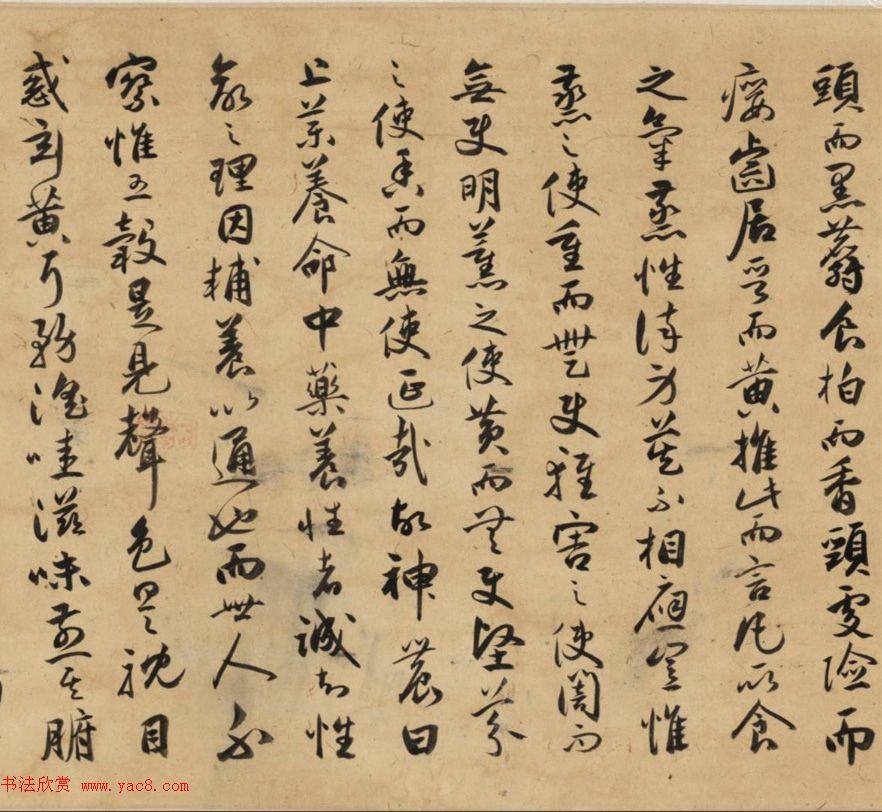 頭而黑麝食柏而香頸處險而
癭齒居晉而黃推此而言凡所食
之氣蒸性染身莫不相應豈惟
蒸之使重而無使輕害之使闇而
無使明薰之使黃而無使堅芬
之使香而無使延哉故神農曰
上藥養命中藥養性者誠知性
命之理因輔養以通也而世人不
察惟五穀是見聲色是耽目
惑玄黃耳務淫哇滋味煎其腑
书法欣赏 www.yac8.com